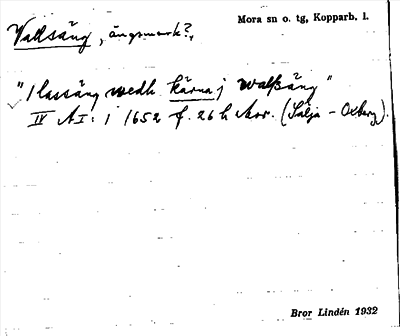 Mora sn o. tg, Kopparb. l.
Vallsäng, ängsmark?,
"1 lassäng wedh kärna j Walßäng"
IV AI: 1 1652 f. 26 h Mor. (Selja - Oxberg).
Bror Lindén 1932